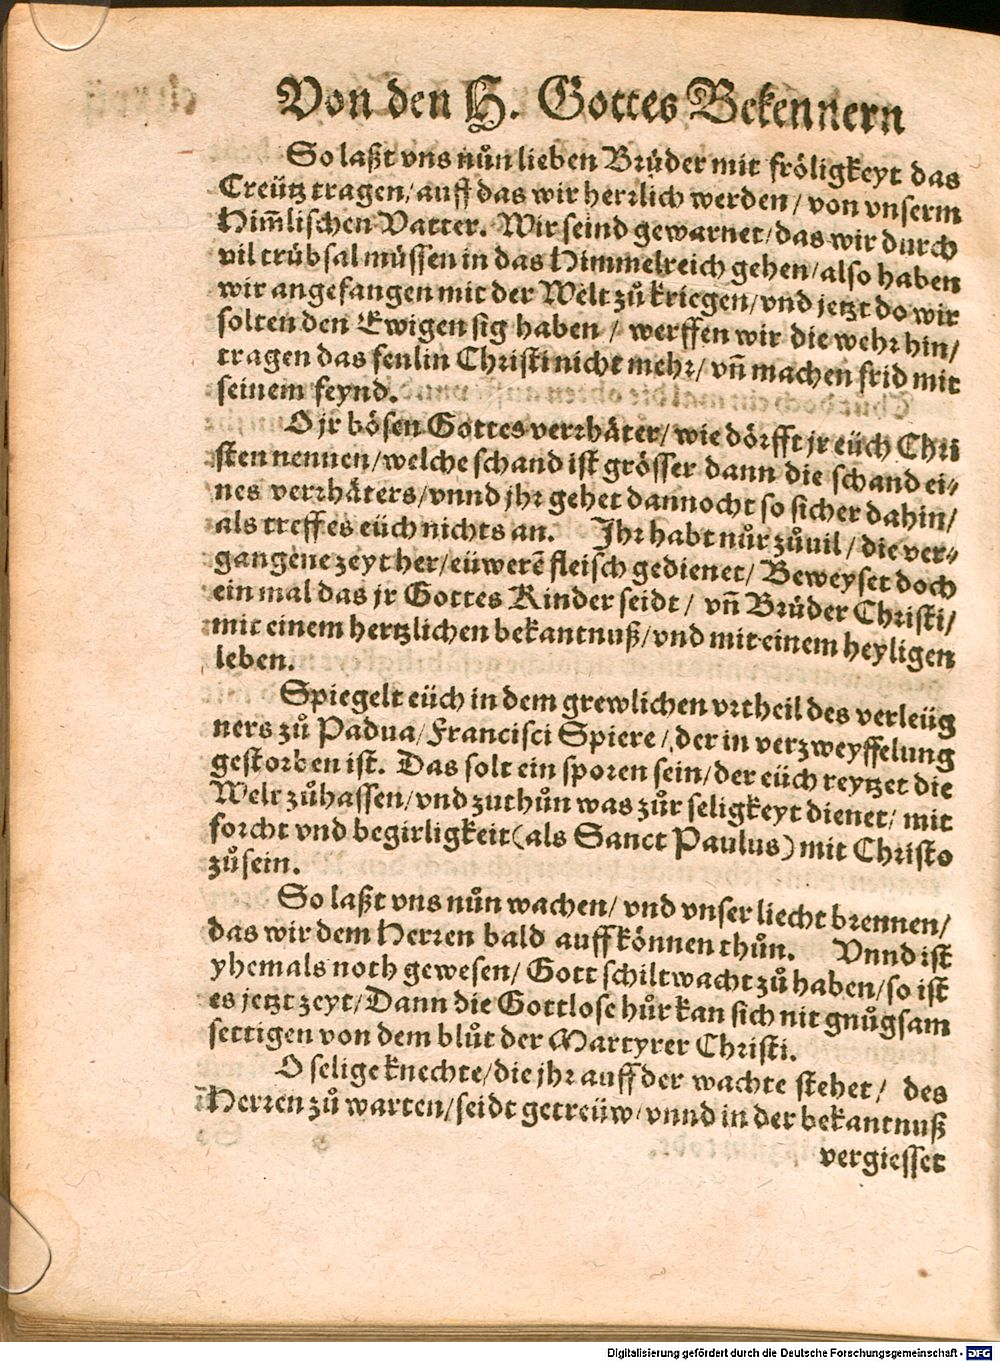 Von den H. Gottes Bekennern
So laßt vns nůn lieben Brüder mit fröligkeyt das
Creütz tragen/ auff das wir herrlich werden/ von vnserm
Him̃lischen Vatter. Wir seind gewarnet/ das wir durch
vil trübsal müssen in das Himmelreich gehen/ also haben
wir angefangen mit der Welt zů kriegen/ vnd jetzt do wir
solten den Ewigen sig haben / werffen wir die wehr hin/
tragen das fenlin Christi nicht mehr/ vñ machen frid mit
seinem feynd.
O jr bösen Gottes verrhäter/ wie dörfft jr eüch Chri
sten nennen/ welche schand ist grösser dann die schand ei⸗
nes verrhäters/ vnnd jhr gehet dannocht so sicher dahin/
als treff es eüch nichts an. Jhr habt nůr zůuil / die ver⸗
gangene zeyt her/ eüwerẽ fleisch gedienet/ Beweyset doch
ein mal das jr Gottes Kinder seidt / vñ Brüder Christi/
mit einem hertzlichen bekantnuß/ vnd mit einem heyligen
leben.
Spiegelt eüch in dem grewlichen vrtheil des verleüg
ners zů Padua/ Francisci Spiere/ der in verzweyffelung
gestorben ist. Das solt ein sporen sein/ der eüch reytzet die
Welt zůhassen/ vnd zuthůn was zůr seligkeyt dienet/ mit
forcht vnd begirligkeit (als Sanct Paulus) mit Christo
zůsein.
So laßt vns nůn wachen/ vnd vnser liecht brennen/
das wir dem Herren bald auff können thůn. Vnnd ist
yhemals noth gewesen/ Gott schiltwacht zů haben/ so ist
es jetzt zeyt/ Dann die Gottlose hůr kan sich nit gnůgsam
settigen von dem blůt der Martyrer Christi.
O selige knechte/ die jhr auff der wachte stehet / des
Herren zů warten/ seidt getreüw/ vnnd in der bekantnuß
vergiesset
Digitalisierung gefördert durch die Deutsche Forschungsgemeinschaft - DFG